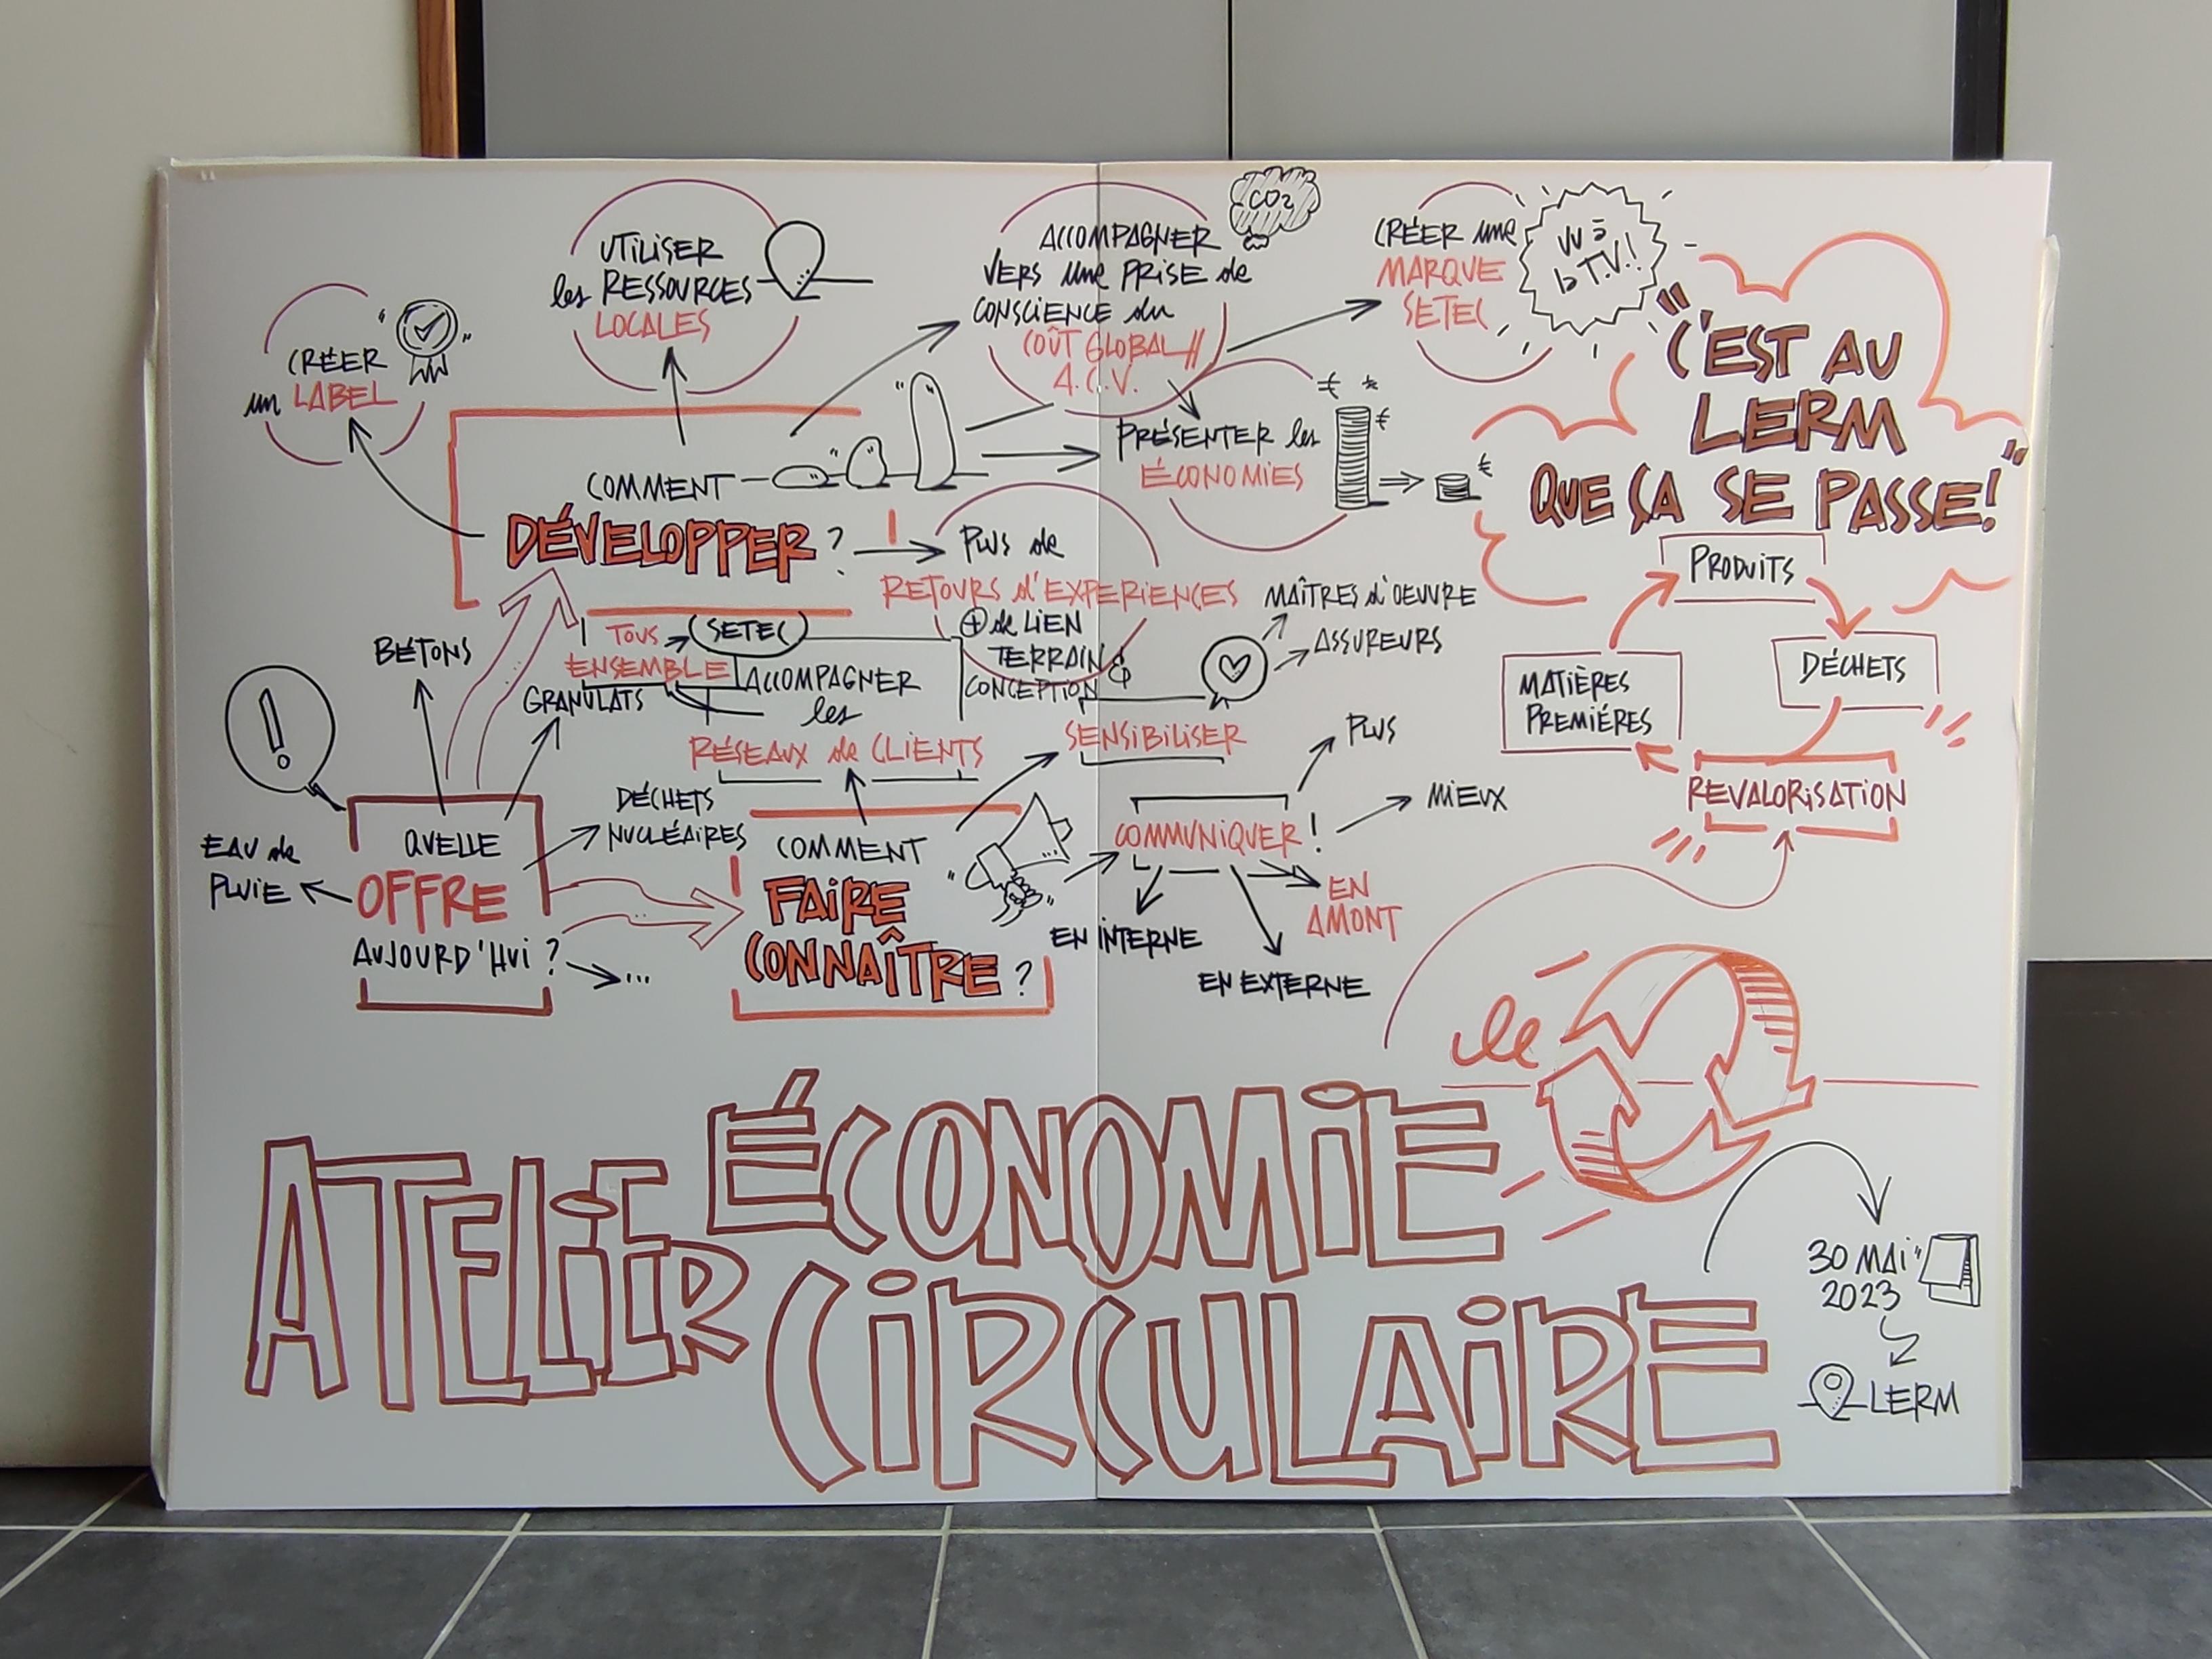 CRÉER
un LABEL
UTILISER
les RESSOURCES
LOCALES
ACCOMPAGNER
VERS une PRISE de
CONSCIENCE du
COÛT GLOBAL //
A.C.V.
CO2
CRÉER une
MARQUE
SETEC
VU à
la T.V.!
"C'EST AU
LERM
QUE ÇA SE PASSE!"
COMMENT
DÉVELOPPER ?
PRÉSENTER les
ÉCONOMIES
€ €
€
€
PLUS de
RETOURS d'EXPERIENCES
+ de LIEN
TERRAIN &
CONCEPTION
TOUS
ENSEMBLE
SETEC
ACCOMPAGNER
les
RÉSEAUX de CLIENTS
MAÎTRES d'OEUVRE
ASSUREURS
SENSIBILISER
BÉTONS
GRANULATS
DÉCHETS
NUCLÉAIRES
!
EAU de
PLUIE
QUELLE
OFFRE
AUJOURD'HUI ?
...
COMMENT
FAIRE
CONNAÎTRE ?
COMMUNIQUER !
PLUS
MIEUX
EN
AMONT
EN INTERNE
EN EXTERNE
PRODUITS
DÉCHETS
MATIÈRES
PREMIÉRES
REVALORISATION
le
ATELIER
ÉCONOMIE
CIRCULAIRE
30 MAI
2023
LERM